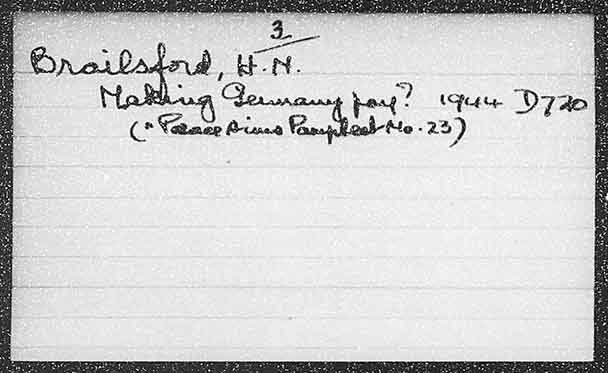 3
Brailsford, H.N.
Making Germany pay? 1944 D720
("Peace Aims Pamphlet No. 23)